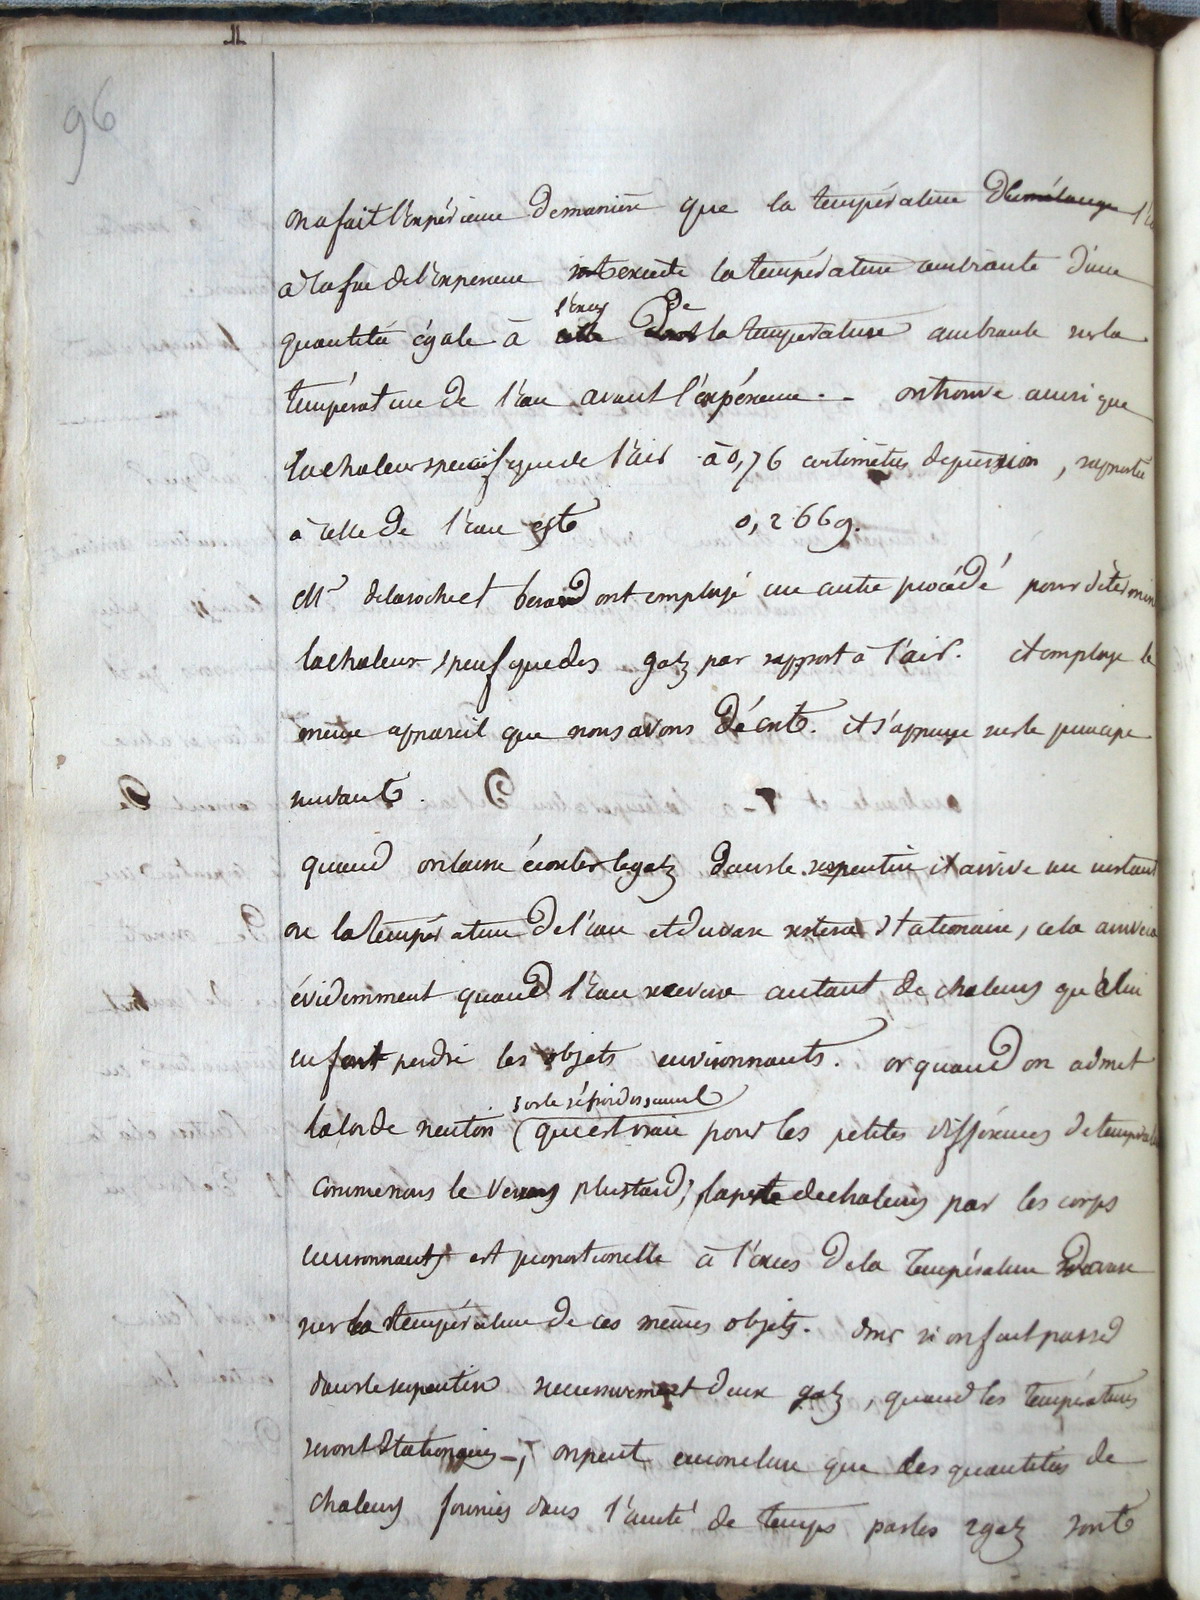 96
on a fait l'expérience de manière que la température du mélange l'
à la fin de l'expérience excede la température ambiante d'une
l'exces de
quantité égale à celle dont la température ambiante sur la
température de l'eau avant l'expérience. - on trouve ainsi que
la chaleur specifique de l'air à 0,76 centimètres de pression, rapportée
à celle de l'eau est 0,2669.
Mr delaroche et berard ont employé un autre procédé pour détermin
la chaleur specifique des gatz par rapport à l'air. il employe le
même appareil que nous avons décrit. il s'appuye sur le principe
suivant.
quand on laisse écouler le gatz dans le serpentin il arrive un instant
ou la température de l'eau et du vase restera stationnaire, cela arrivera
évidemment quand l'eau recevra autant de chaleur qu'à lui
en font perdre les objets environnants. or quand on admet
sur le réfroidissement
la loi de neuton (qui est vraie pour les petites différences de temperat
comme nous le verrons plus tard, la perte de chaleur par les corps
environnants est proportionelle à l'exces de la température du vase
sur la température de ces mêmes objets. donc si on fait passer
dans le serpentin successivement deux gatz, quand les températures
seront stationnaires -, on peut en conclure que des quantités de
chaleur fournies dans l'unité de temps par les 2 gatz sont